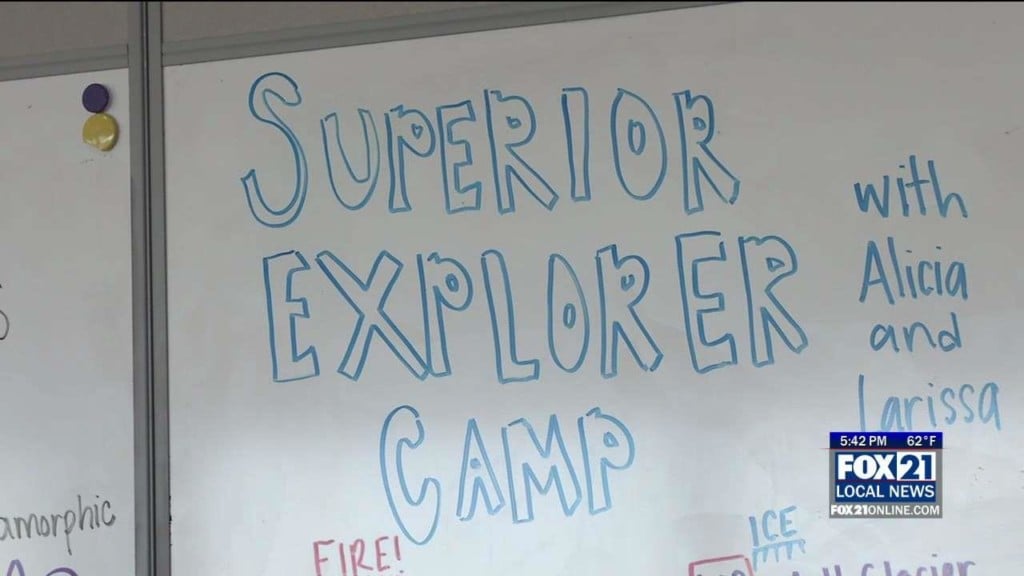 SUPERIOR
EXPLORER
CAMP
with
Alicia
and
Larissa
amorphic
FIRE!
ICE
Glacier
5:42 PM 62°F
FOX21
LOCAL NEWS
FOX21ONLINE.COM